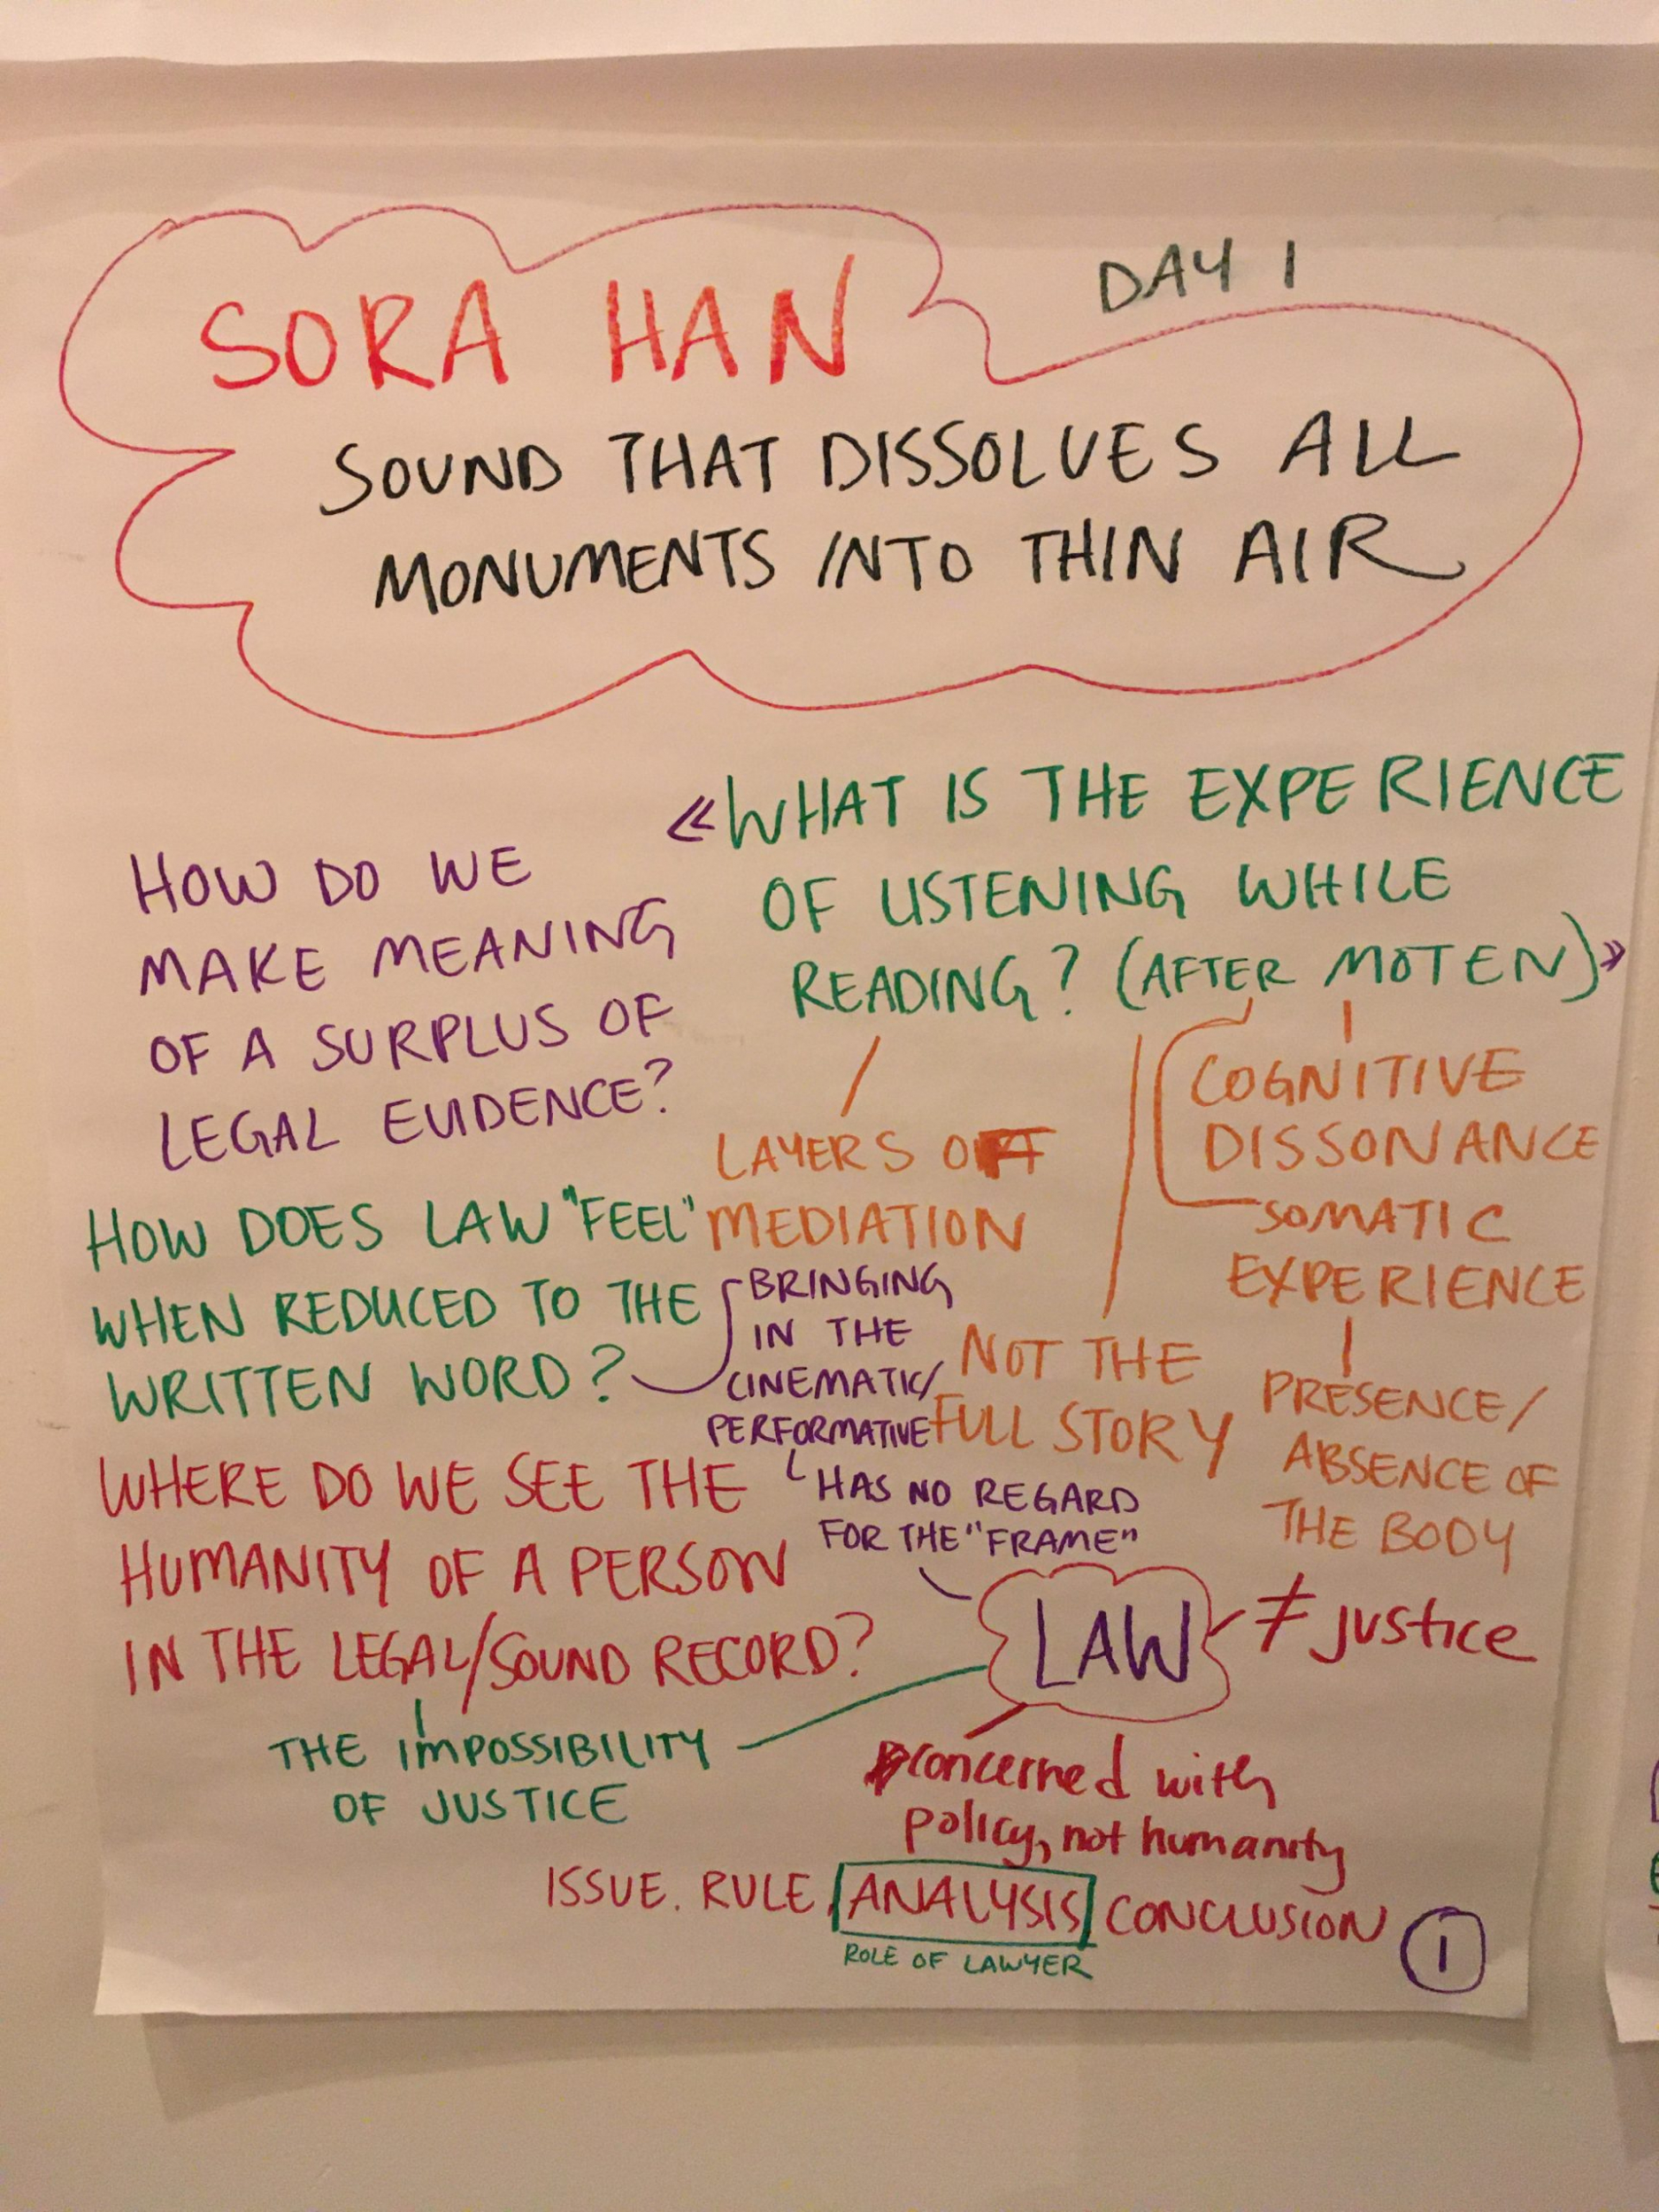 DAY 1
SORA HAN
SOUND THAT DISSOLVES ALL
MONUMENTS INTO THIN AIR
HOW DO WE
MAKE MEANING
OF A SURPLUS OF
LEGAL EVIDENCE?
«WHAT IS THE EXPERIENCE
OF LISTENING WHILE
READING? (AFTER MOTEN)»
LAYERS OF
MEDIATION
COGNITIVE
DISSONANCE
SOMATIC
EXPERIENCE
PRESENCE/
ABSENCE OF
THE BODY
NOT THE
FULL STORY
HOW DOES LAW "FEEL"
WHEN REDUCED TO THE
WRITTEN WORD?
BRINGING
IN THE
CINEMATIC/
PERFORMATIVE
HAS NO REGARD
FOR THE "FRAME"
WHERE DO WE SEE THE
HUMANITY OF A PERSON
IN THE LEGAL/SOUND RECORD?
THE IMPOSSIBILITY
OF JUSTICE
LAW ≠ justice
concerned with
policy, not humanity
ISSUE. RULE. ANALYSIS CONCLUSION
ROLE OF LAWYER
1